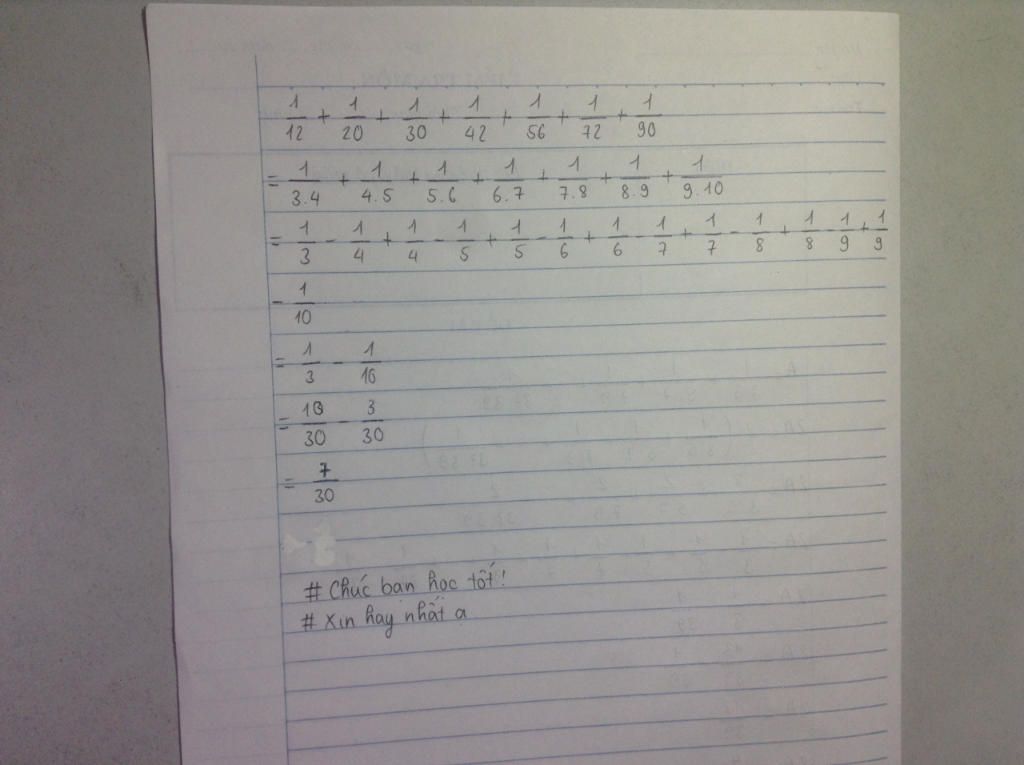 1/12 + 1/20 + 1/30 + 1/42 + 1/56 + 1/72 + 1/90
= 1/3.4 + 1/4.5 + 1/5.6 + 1/6.7 + 1/7.8 + 1/8.9 + 1/9.10
= 1/3 - 1/4 + 1/4 - 1/5 + 1/5 - 1/6 + 1/6 - 1/7 + 1/7 - 1/8 + 1/8 - 1/9 + 1/9
- 1/10
= 1/3 - 1/10
= 10/30 - 3/30
= 7/30
# Chúc bạn học tốt!
# Xin hay nhất ạ